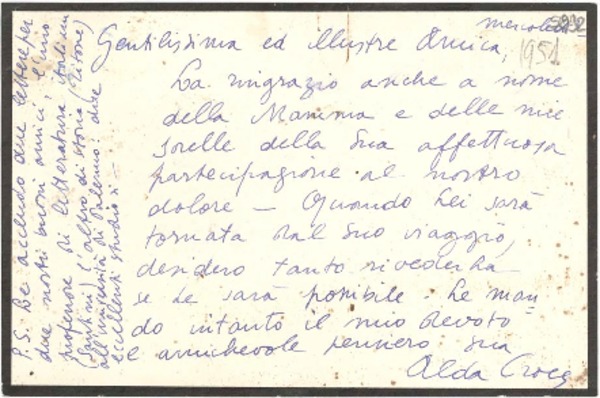 mercoledì
1951
Gentilissima ed illustre Amica,
La ringrazio anche a nome
della Mamma e delle mie
sorelle della Sua affettuosa
partecipazione al nostro
dolore — Quando Lei sarà
tornata dal Suo viaggio,
desidero tanto rivederLa
se Le sarà possibile. Le man-
do intanto il mio devoto
e amichevole pensiero Sua
Alda Croce
P.S. Le accludo due lettere per
due nostri buoni amici, l'uno
professore di letteratura italiana
(Santini) l'altro di storia (Titone)
all'università di Palermo: due
eccellenti studiosi —